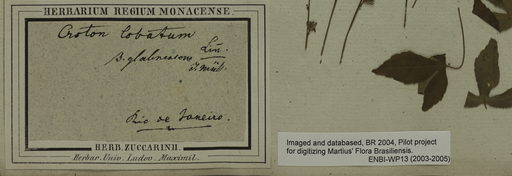 HERBARIUM REGIUM MONACENSE.
Croton lobatum
Lin.
β. glabrescens
J. Müll.
Rio de Janeiro.
HERB. ZUCCARINII.
Herbar. Univ. Ludov. Maximil.
Imaged and databased, BR 2004, Pilot project
for digitizing Martius' Flora Brasiliensis.
ENBI-WP13 (2003-2005)